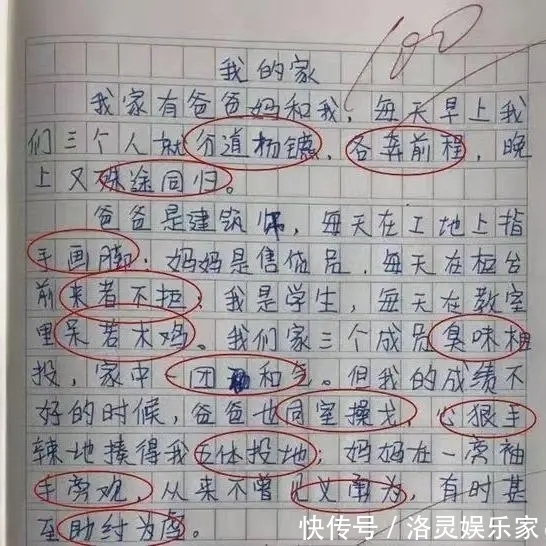 100
我的家
我家有爸爸妈和我，每天早上我
们三个人就分道扬镳，各奔前程，晚
上又殊途同归。
爸爸是建筑师，每天在工地上指
手画脚；妈妈是售货员，每天在柜台
前来者不拒；我是学生，每天在教室
里呆若木鸡。我们家三个成员臭味相
投，家中一团和气。但我的成绩不
好的时候，爸爸也同室操戈，心狠手
辣地揍得我五体投地；妈妈在一旁袖
手旁观，从来不曾见义勇为，有时甚
至助纣为虐。
快传号/洛灵娱乐家